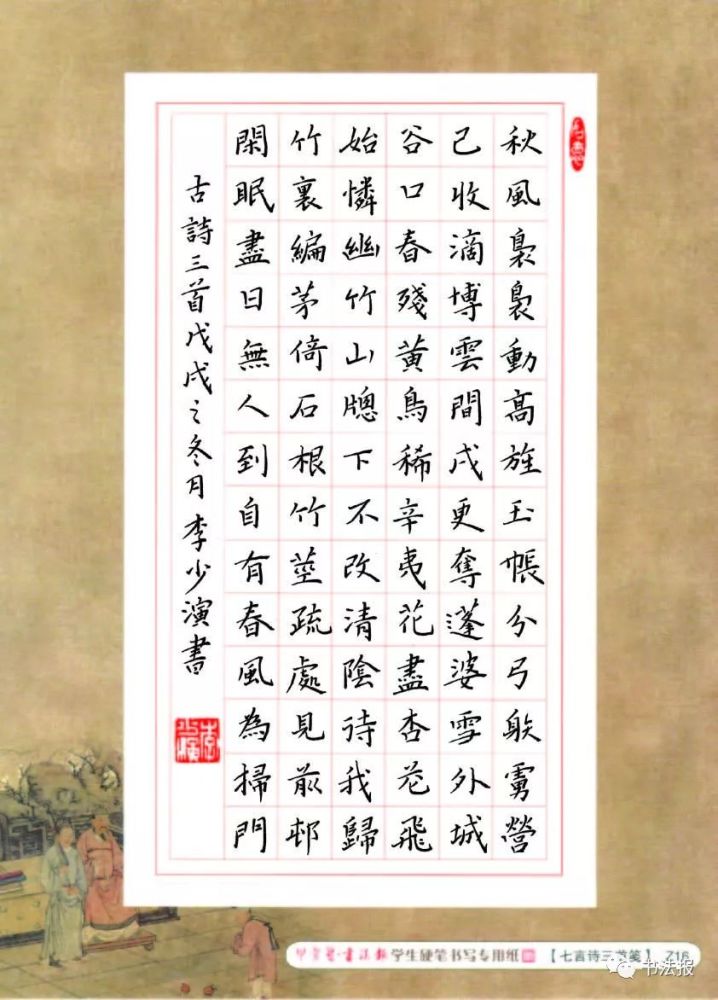 秋風裊裊動高旌玉帳分弓䠶虜營
已收滴博雲間戍更奪蓬婆雪外城
谷口春殘黃鳥稀辛夷花盡杏花飛
始憐幽竹山牕下不改清陰待我歸
竹裏編茅倚石根竹莖疏處見前邨
閑眠盡日無人到自有春風為掃門
古詩三首戊戌之冬月李少演書
李少演
書法報 学生硬笔书写专用纸 【七言诗三首笺】 Z16
书法报